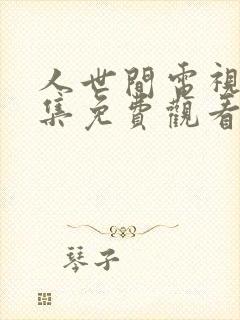 人世間電視
集免費觀看
琴子